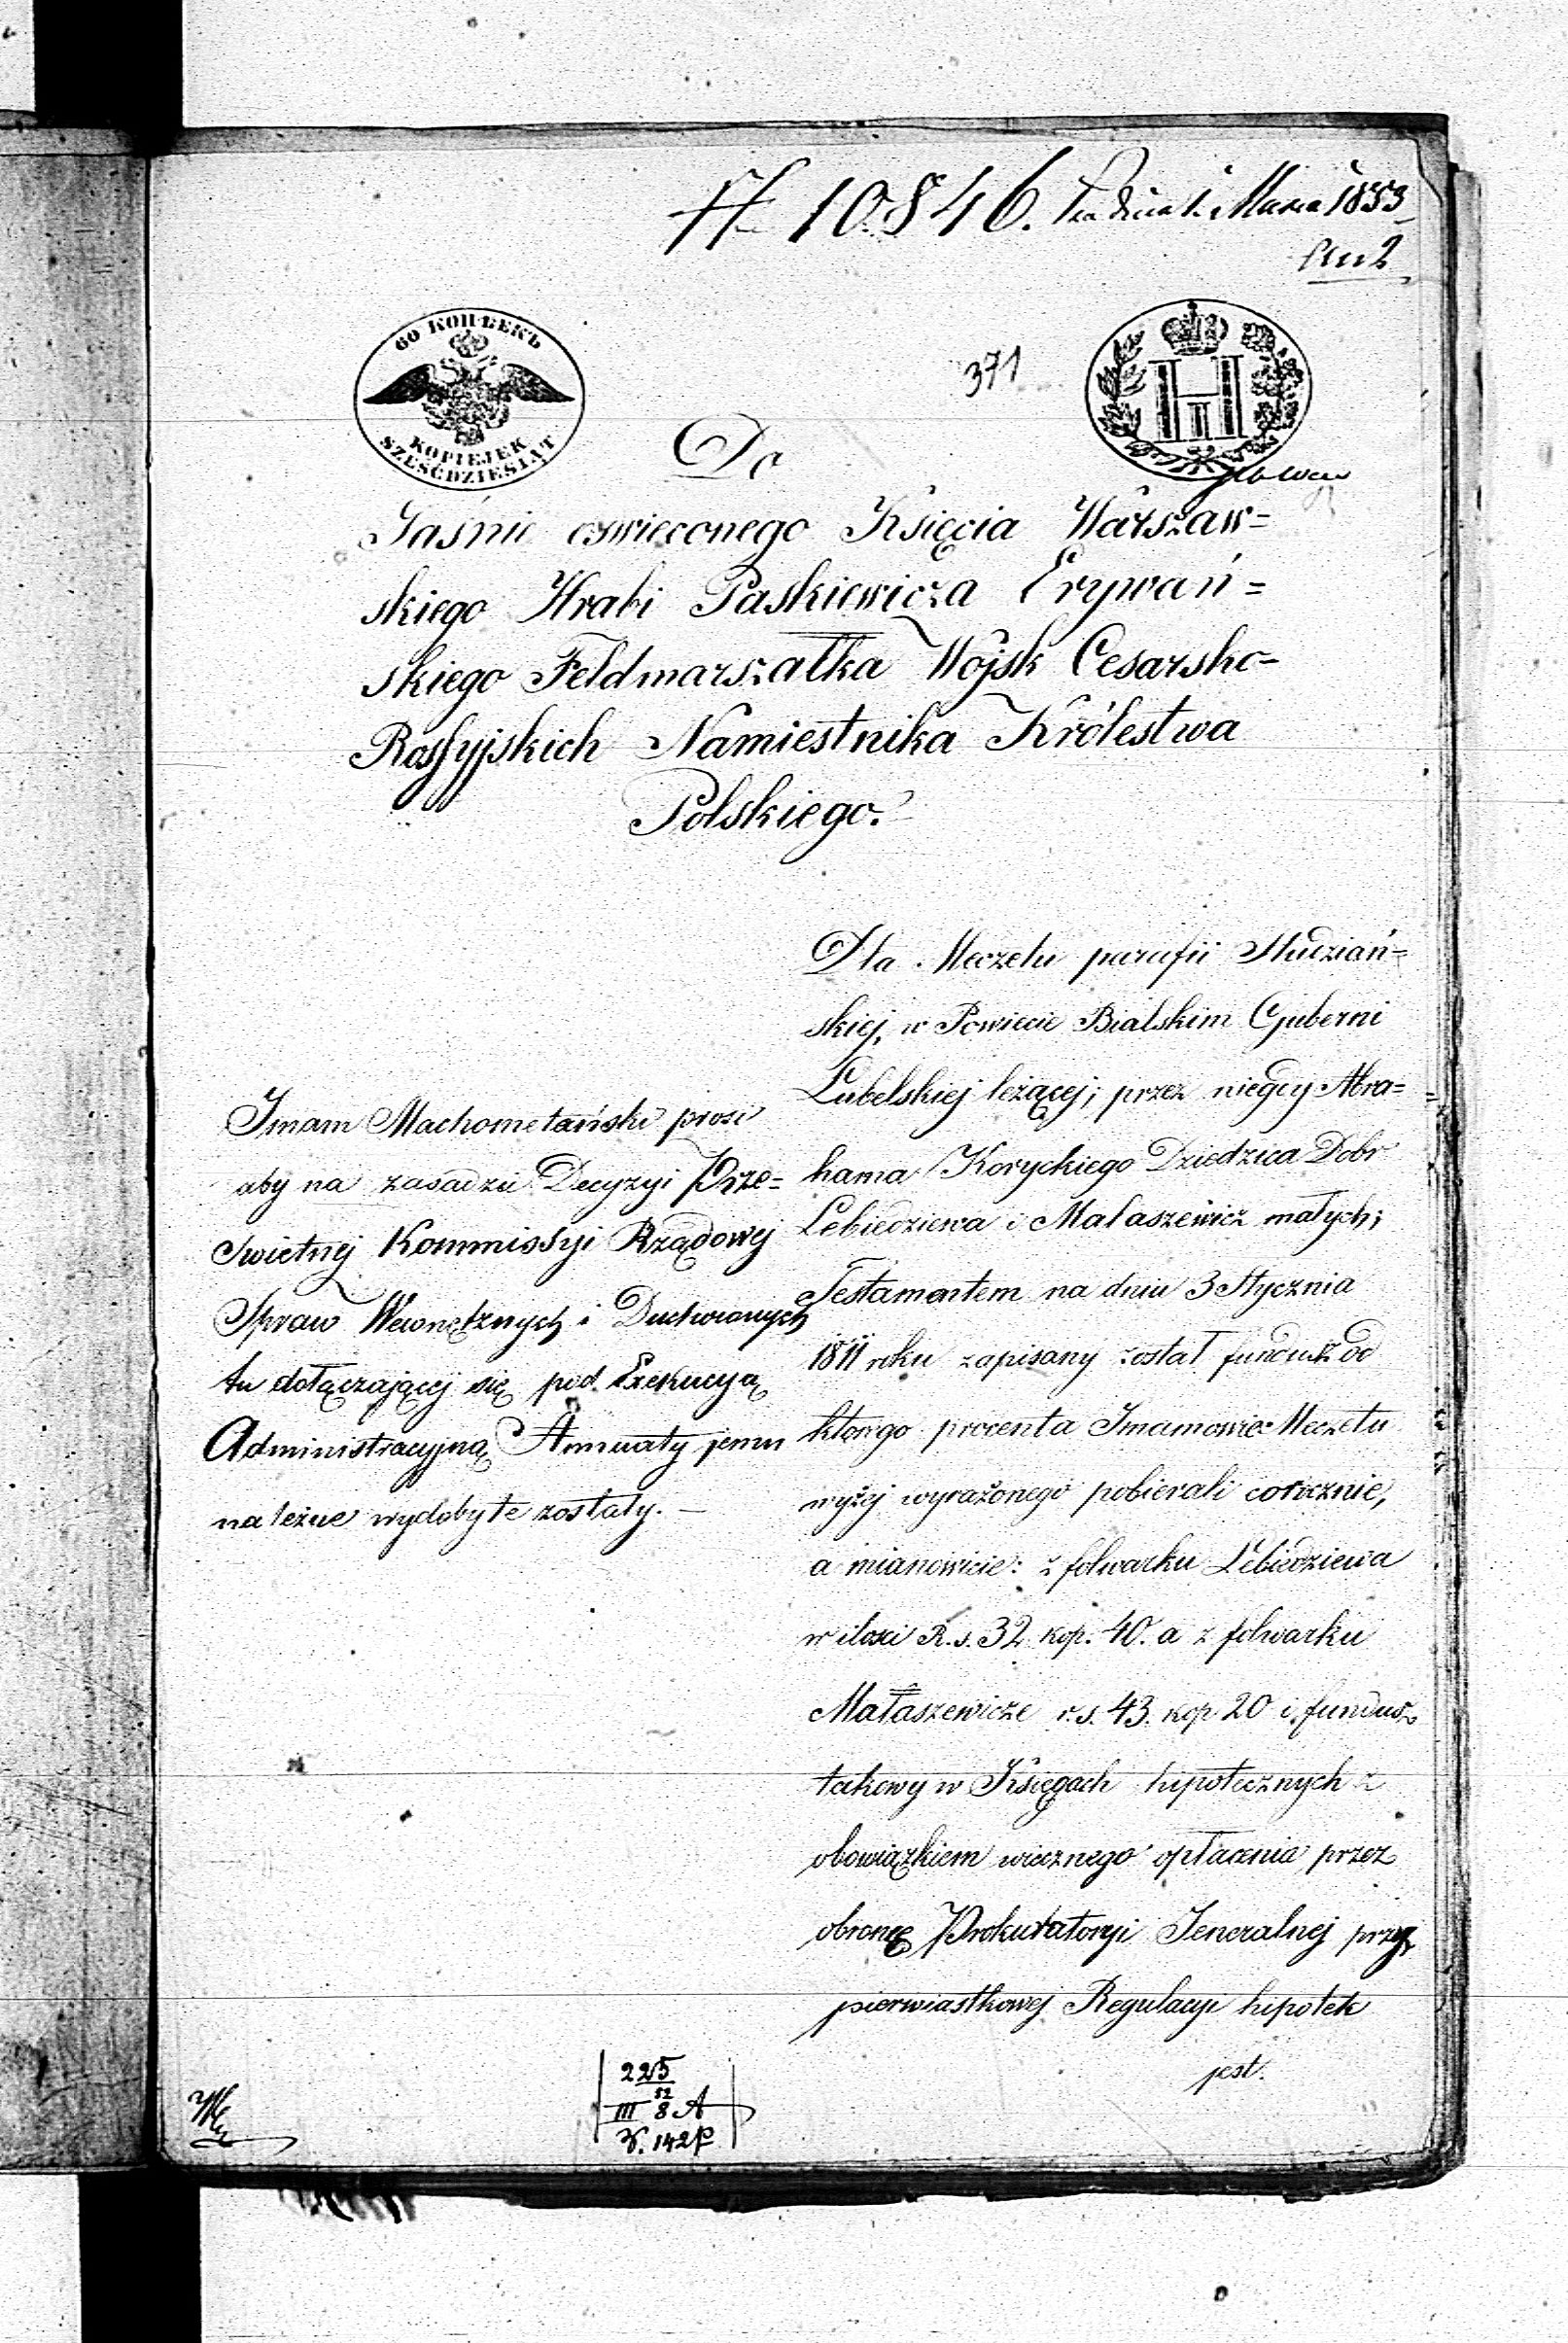 № 10846. 1853
371
60 КОПѢЕКЪ
KOPIEJEK
SZEŚĆDZIESIĄT
Do
Jaśnie oswieconego Księcia Warszaw=
skiego Hrabi Paskiewicza Erywań=
skiego Feldmarszałka Wojsk Cesarsko-
Rossyjskich Namiestnika Królestwa
Polskiego.
Imam Machometański prosi
aby na zasadzie Decyzyi Prze=
swietnej Kommissyi Rządowej
Spraw Wewnętrznych i Duchwonych
tu dołączającej się pod Exekucyą
Administracyjną Annuaty jemu
należne wydobyte zostały. —
Dla Meczetu parafii Studziań=
skiej, w Powiecie Bialskim Guberni
Lubelskiej leżącej; przez niegdy Abra=
hama Koryckiego Dziedzica Dobr
Lebiedziewa i Małaszewicz małych;
Testamentem na dniu 3 Stycznia
1811 roku zapisany został fundusz od
ktorego procenta Imamowie Meczetu
wyżej wyrażonego pobierali corocznie,
a mianowicie: z folwarku Lebiedziewa
w ilosci R. s. 32 kop. 40. a z folwarku
Małaszewicze r. s. 43. kop 20 i fundusz
takowy w Księgach hipotecznych z
obowiązkiem wiecznego opłacenia przez
obronę Prokuratoryi Jeneralnej przy
pierwiastkowej Regulacyi hipotek
jest.
225
52
III 8 A
142